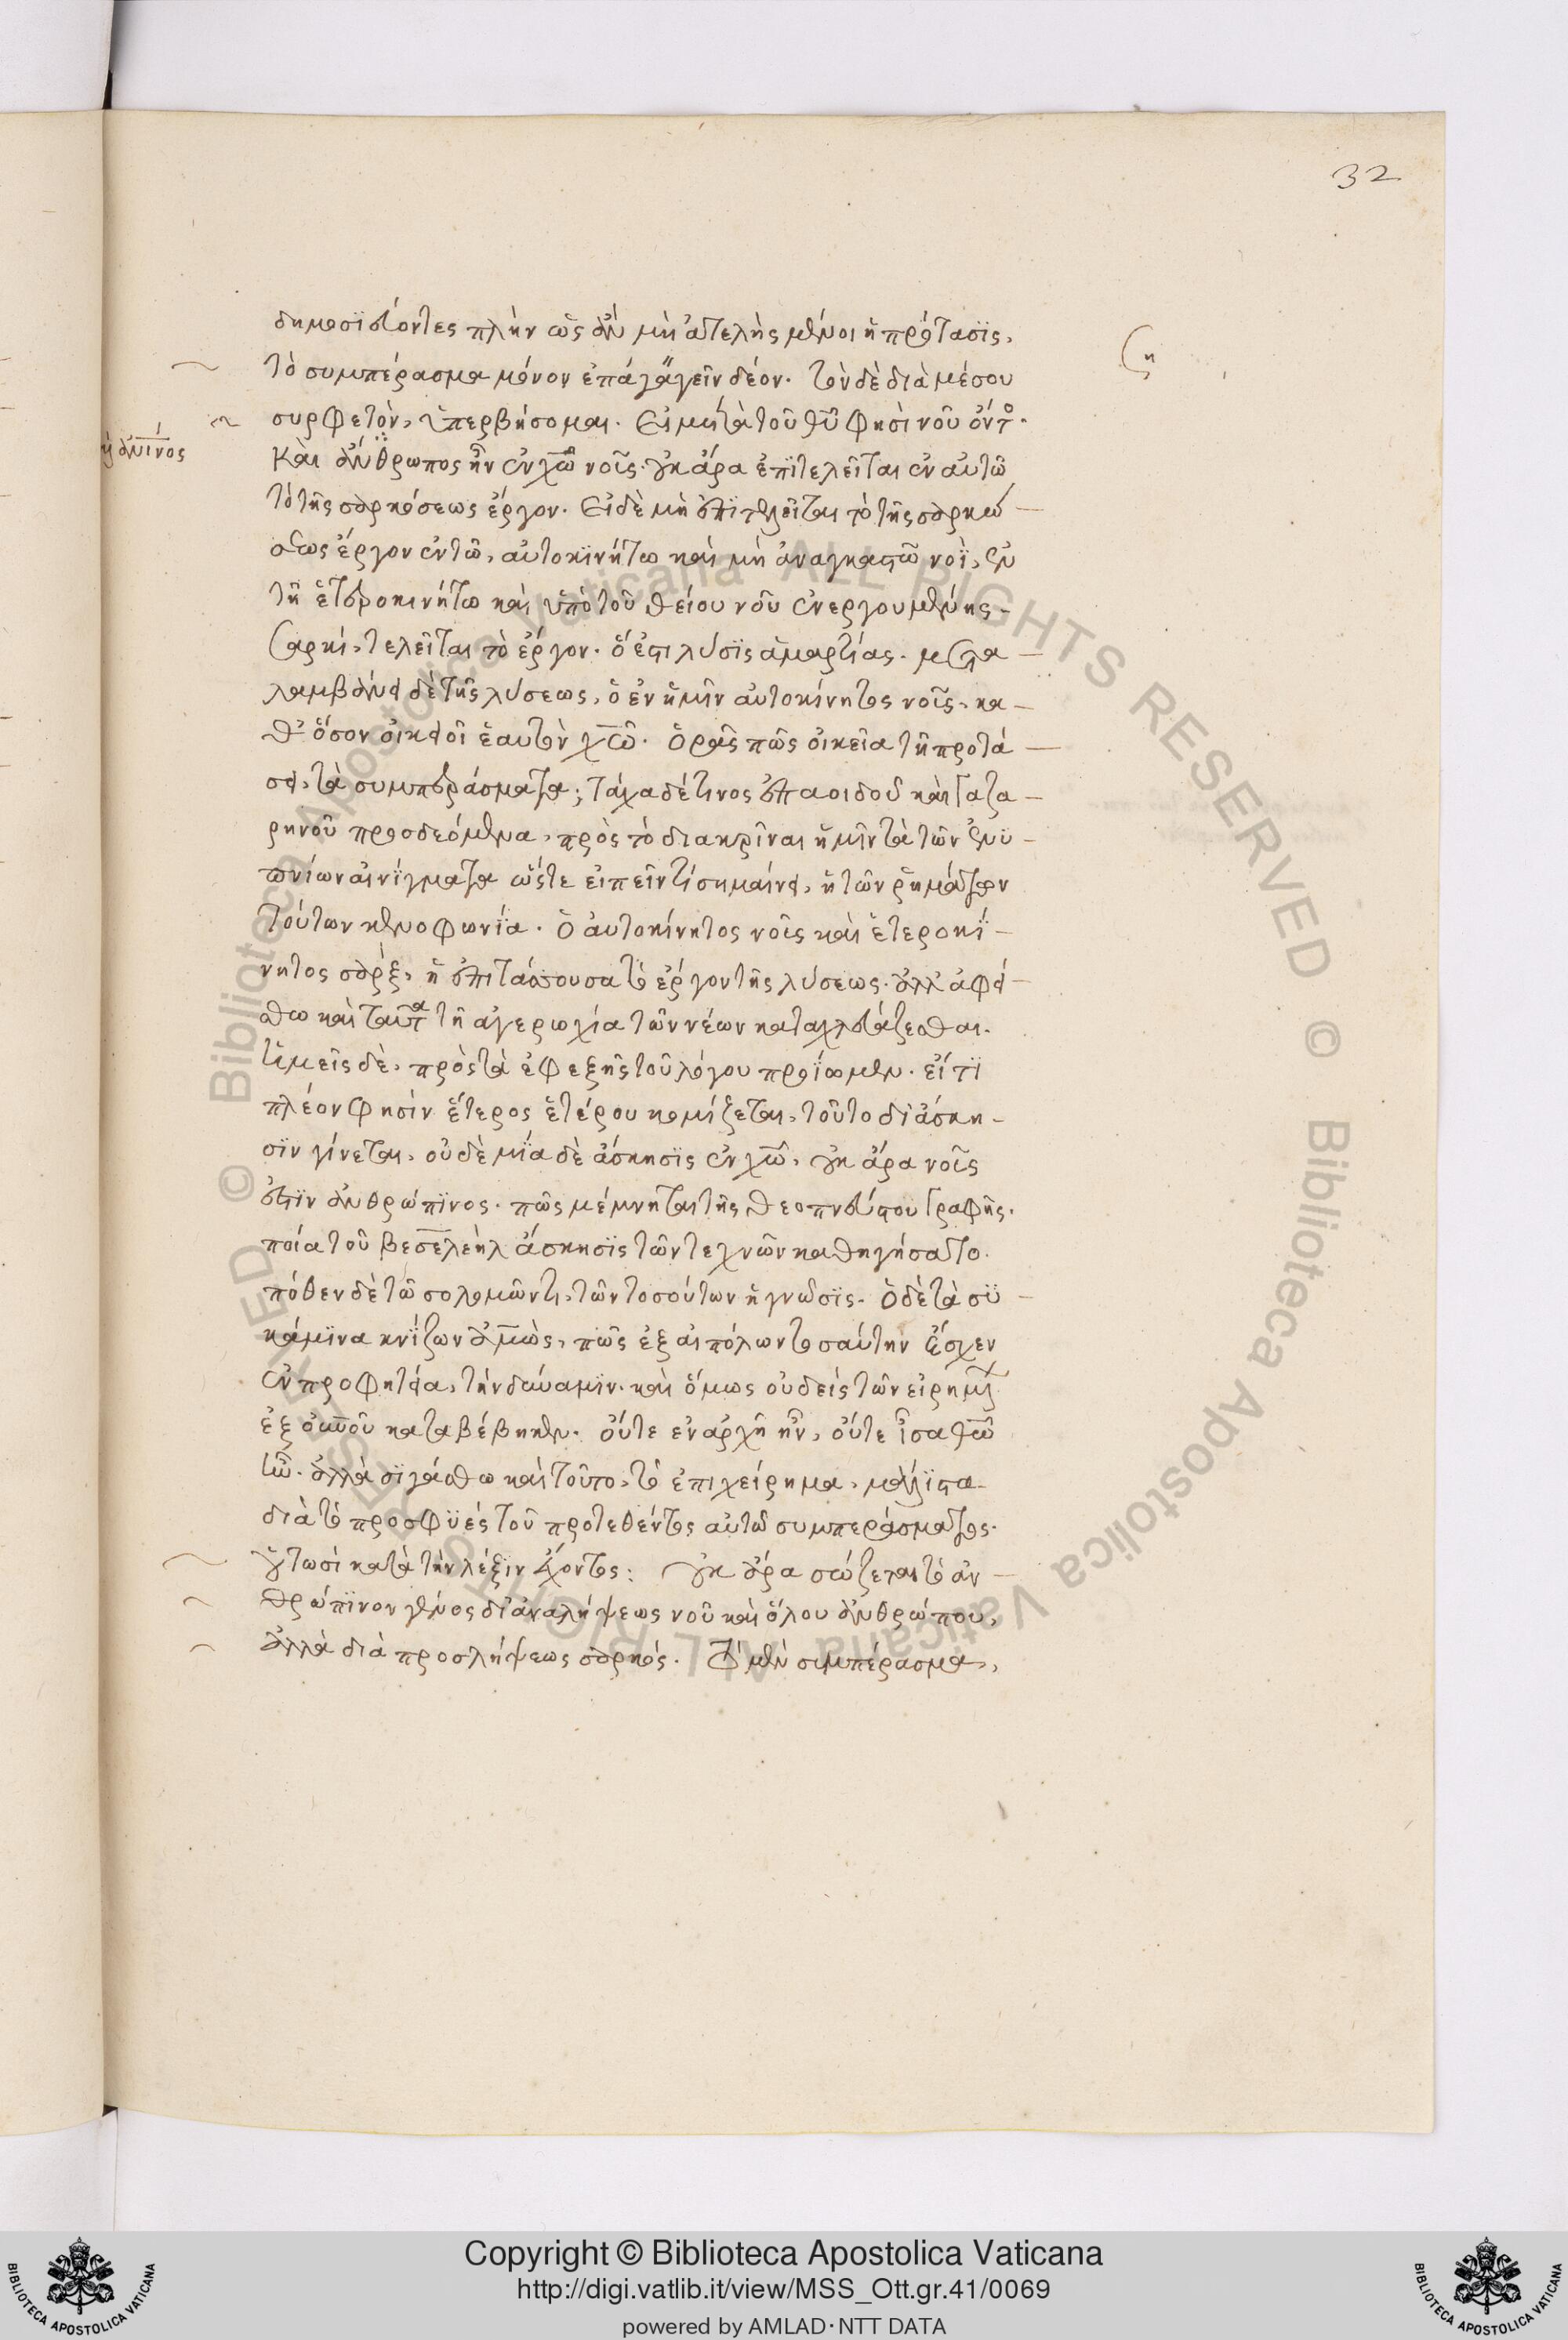 32
δημοσιεύοντες πλὴν ὡς ἂν μὴ ἀτελὴς μένοι ἡ πρότασϊς,
τὸ συμπέρασμα μόνον ἐπάγαγεῖν δέον. τὸν δὲ διὰ μέσου
συρφετὸν, ὑπερβήσομαι. Εἰ μετὰ τοῦ θῦ φησὶ νοῦ ὄντος.
Καὶ ἄνθρωπος ἦν ἐν χῶ νοῦς. οὐκ ἄρα ἐπϊτελεῖται ἐν αὐτῶ
τὸ τῆς σαρκώσεως ἔργον. Εἰ δὲ μὴ ἐπιτελεῖται τὸ τῆς σαρκώ
σεως ἔργον ἐν τῶ, αὐτοκϊνήτω καὶ μὴ ἀναγκαστῶ νοῒ, ἐν
τῆ ἑτεροκινήτω καὶ ὑπὸ τοῦ θείου νοῦ ἐνεργουμένης
σαρκί, τελεῖται τὸ ἔργον. ὅ ἐστι λύσϊς ἁμαρτίας. μετα
λαμβάνει δὲ τῆς λύσεως, ὁ ἐν ἡμῖν αὐτοκίνητος νοῦς, κα
θ' ὅσον οἰκειοῖ ἑαυτὸν χῶ. Ὁρᾶς πῶς οἰκεῖα τῆ προτά
σει, τὰ συμπεράσματα; τάχα δέ τινος ἐπαοιδοῦ καὶ Γαζα
ρηνοῦ προσδεόμενα, πρὸς τὸ διακρῖναι ἡμῖν τὰ τῶν ἐνϋ
πνίων αἰνΐγματα ὥστε εἰπεῖν τί σημαίνει, ἡ τῶν ῥημάτων
τούτων κενοφωνΐα. Ὁ αὐτοκίνητος νοῦς καὶ ἑτεροκΐ
νητος σὰρξ, ἡ ἐπιτάττουσα τὸ ἔργον τῆς λύσεως. ἀλλ' ἀφεί
σθω καὶ ταῦτα τῆ ἀγερωχία τῶν νέων καταχλευάζεσθαι.
ἡμεῖς δὲ, πρὸς τὰ ἐφεξῆς τοῦ λόγου προΐωμεν. εἴ τϊ
πλέον φησὶν ἕτερος ἑτέρου κομίζεται, τοῦτο δι ἄσκη
σϊν γίνεται, οὐδὲ μΐα δὲ ἄσκησϊς ἐν χῶ, οὐκ ἄρα νοῦς
ἐστϊν ἀνθρώπϊνος. πῶς μέμνηται τῆς θεοπνεύστου Γραφῆς.
ποία τοῦ βεσελεὴλ ἄσκησϊς τῶν τεχνῶν καθηγήσατο.
πόθεν δὲ τῶ σολομῶντι, τῶν τοσούτων ἡ γνῶσϊς. Ὁ δὲ τὰ σϋ
κάμϊνα κνΐζων ἀμὼς, πῶς ἐξ αἰπόλων τοσαύτην ἔσχεν
ἐν προφητεία, τὴν δύναμϊν. καὶ ὅμως οὐδεὶς τῶν εἰρημένων
ἐξ οὐνοῦ καταβέβηκεν. οὔτε ἐν ἀρχῆ ἦν, οὔτε ἶσα θῶ
τῶ. ἀλλὰ σϊγάσθω καὶ τοῦτο, τὸ ἐπιχείρημα, μάλϊστα
διὰ τὸ προσφϋὲς τοῦ προτεθέντος αὐτῶ συμπεράσματος.
οὑτωσὶ κατὰ τὴν λέξιν ἔχοντος: οὐκ ἄρα σώζεται τὸ ἀν
θρώπϊνον γένος δι ἀναλήψεως νοῦ καὶ ὅλου ἀνθρώπου,
ἀλλὰ διὰ προσλήψεως σαρκός. Τὸ μὲν συμπέρασμα,
Copyright © Biblioteca Apostolica Vaticana
http://digi.vatlib.it/view/MSS_Ott.gr.41/0069
powered by AMLAD·NTT DATA